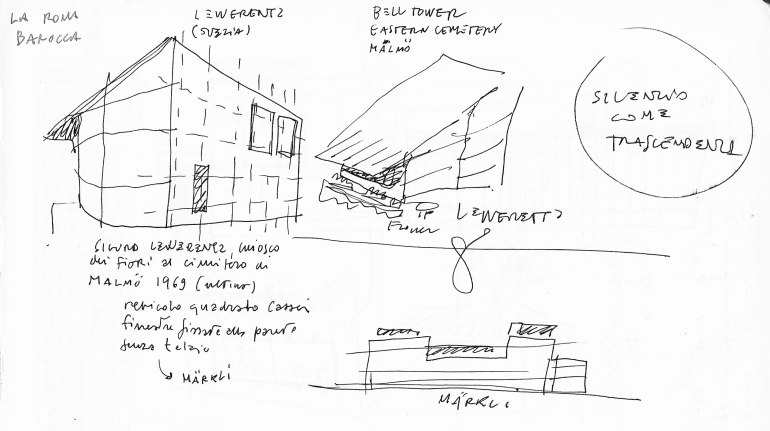 LA ROMA
BAROCCA
LEWERENTZ
(SVEZIA)
BELL TOWER
EASTERN CEMETERY
MÄLMÖ
SILENZIO
COME
TRASCENDENZA
FLOWER
LEWERENTZ
SIGURD LEWERENTZ, CHIOSCO
dei FIORI al cimitero di
MALMÖ 1969 (ultimo)
reticolo quadrato casseri
finestre fissate alla parete
senza telaio
MÄRKLI
MÄRKLI